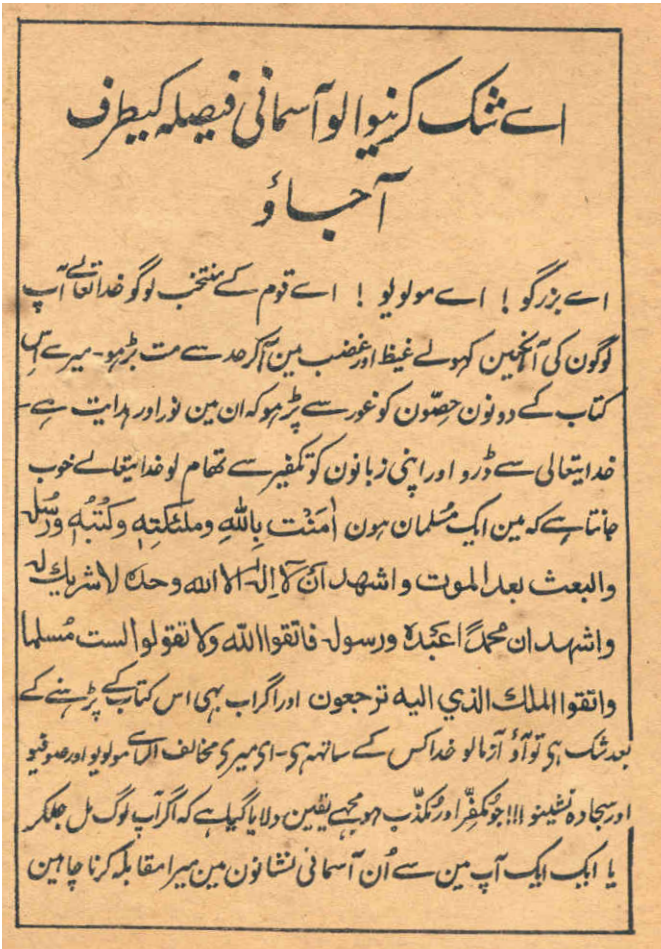 اے شک کرنیوالو آسمانی فیصلہ کیطرف
آجاؤ
اے بزرگو! اے مولویو! اے قوم کے منتخب لوگو خدا تعالےٰ آپ
لوگون کی آنکہین کہولے غیظ اور غضب مین آکر حد سے مت بڑہو۔ میرے اس
کتاب کے دونون حصّون کو غور سے پڑہو کہ ان مین نور اور ہدایت ہے۔
خدایتعالی سے ڈرو اور اپنی زبانون کو تکفیر سے تھام لو خدایتعالے خوب
جانتا ہے کہ مین ایک مُسلمان ہون اٰمَنْت بِاللّٰهِ وملئکتِهٖ وکُتُبُهٖ ورُسُلهٖ
والبعث بعد الموت واشهد انْ لَّا اِلٰه الا الله وحدهٗ لا شریك له
واشهد ان محمدًا عَبْدهٗ ورسوله فاتقوا اللّٰه ولا تقولوا لست مُسلما
واتقوا الملك الذي الیه ترجعون اور اگر اب بہی اس کتاب کے پڑہنے کے
بعد شک ہی تو آؤ آزمالو خدا کس کے ساتہہ ہی۔ ای میری مخالف الرای مولویو اور صوفیو
اور سجادہ نشینو!!! جو مُکَفِّر اور مُکذّب ہو مجہے یقین دلایا گیا ہے کہ اگر آپ لوگ مل جلکر
یا ایک ایک آپ مین سے اُن آسمانی نشانون مین میرا مقابلہ کرنا چاہین